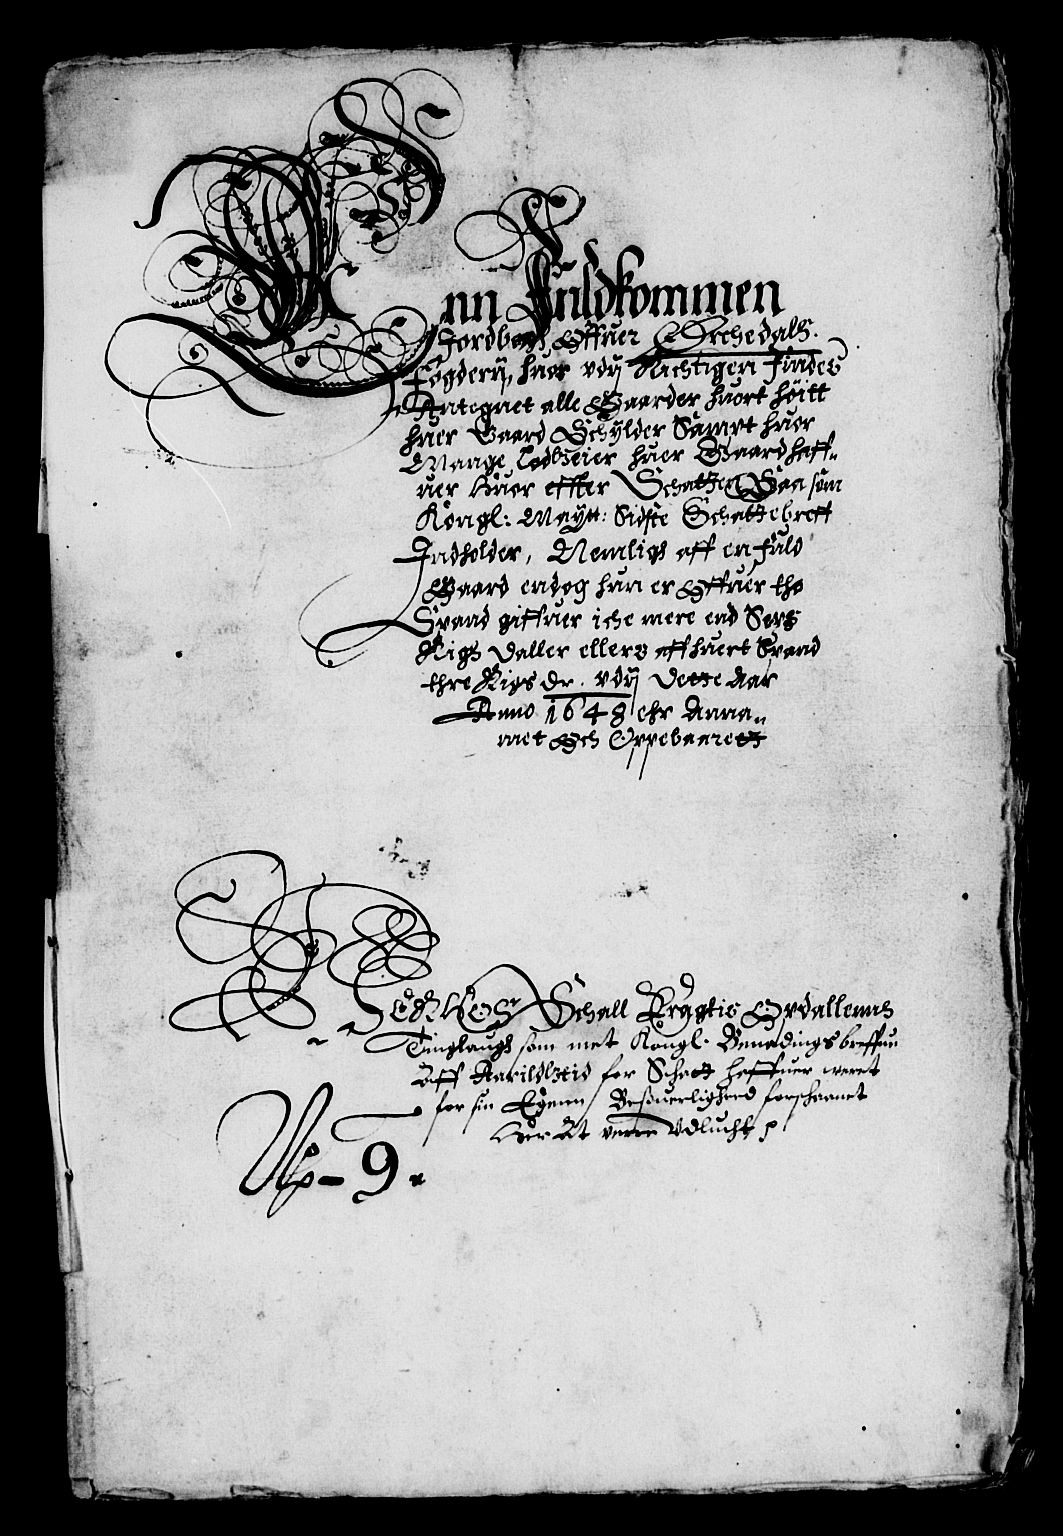 Enn Fuldkommen
Jordbogh Offuer Orchedals
Fogderij, huor vdj Richtigen Findes
Antegnet alle Gaarder huort høitt
huer Gaard Schylder Sampt huor
Mange Lodtzeier huer Gaard haff-
uer Huor effter Schatten Saa som
Kongl: Maytt: Sidste Schattebreff
Indholder, Nemligh aff en fuld
Gaard endog hun er Offuer tho
Spand giffuer iche mere end Sex
Rigs Daller ellers aff huert Spand
thre Rigs dr. vdj Dette Aar
Anno 1648 ehr Anna-
met Och Oppebaarett
Schall Rigtig Opdallems
Tinglaugh som met Kongl. Benadings breffue
Aff Aarildtztid for Schatt haffuer weret
for sin Egenn Besuerlighed forschaanet
Her At være Vdlucht
No - 9.